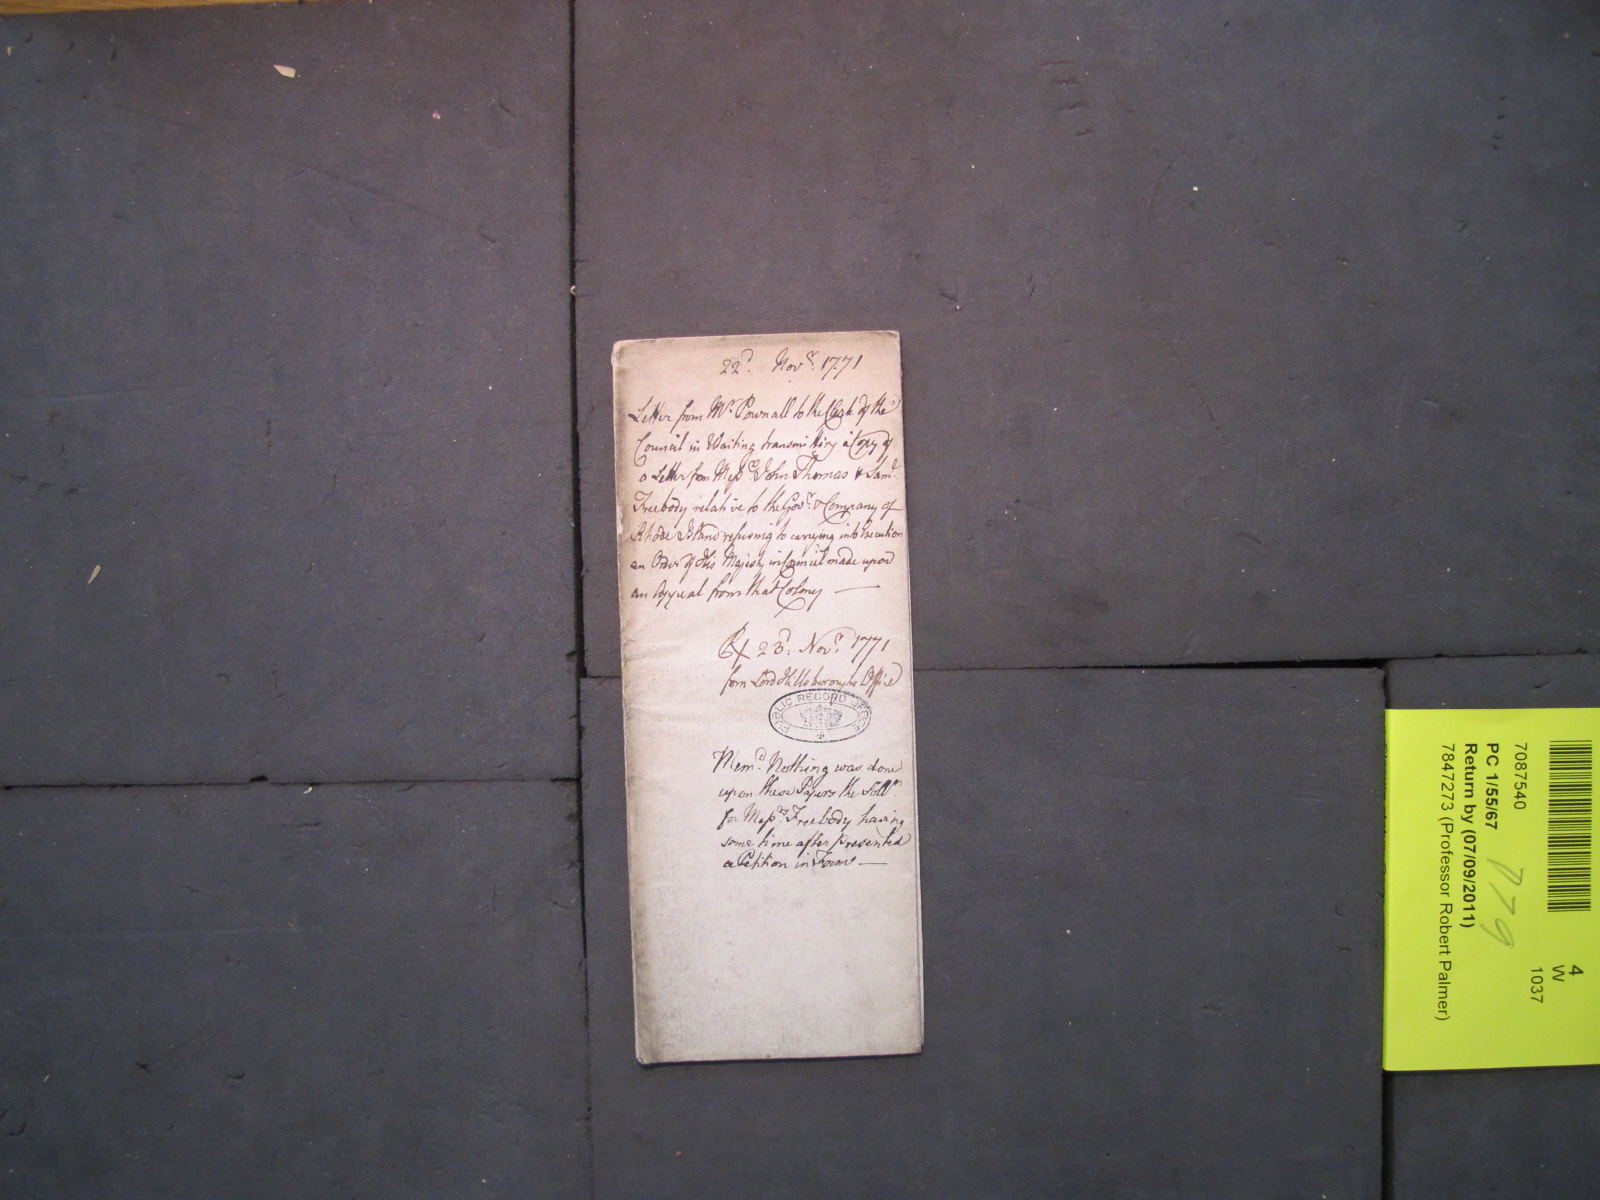 22d. Novr. 1771
Letter from Mr. Pownall to the Clerk of the
Council in Waiting transmitting a Copy of
a Letter from Messrs. John Thomas & Saml.
Freebody relative to the Govr. & Company of
Rhode Island refusing to carrying into Execution
an Order of His Majesty in Council made upon
an Appeal from that Colony
Rx 23d. Novr. 1771
from Lord Hillsborough's Office
PUBLIC RECORD OFFICE
Memd. Nothing was done
upon these Papers the Sollr.
for Messrs. Freebody having
some time after presented
a Petition in Forme
7087540
PC 1/55/67
Return by (07/09/2011)
7847273 (Professor Robert Palmer)
779
4
W
1037